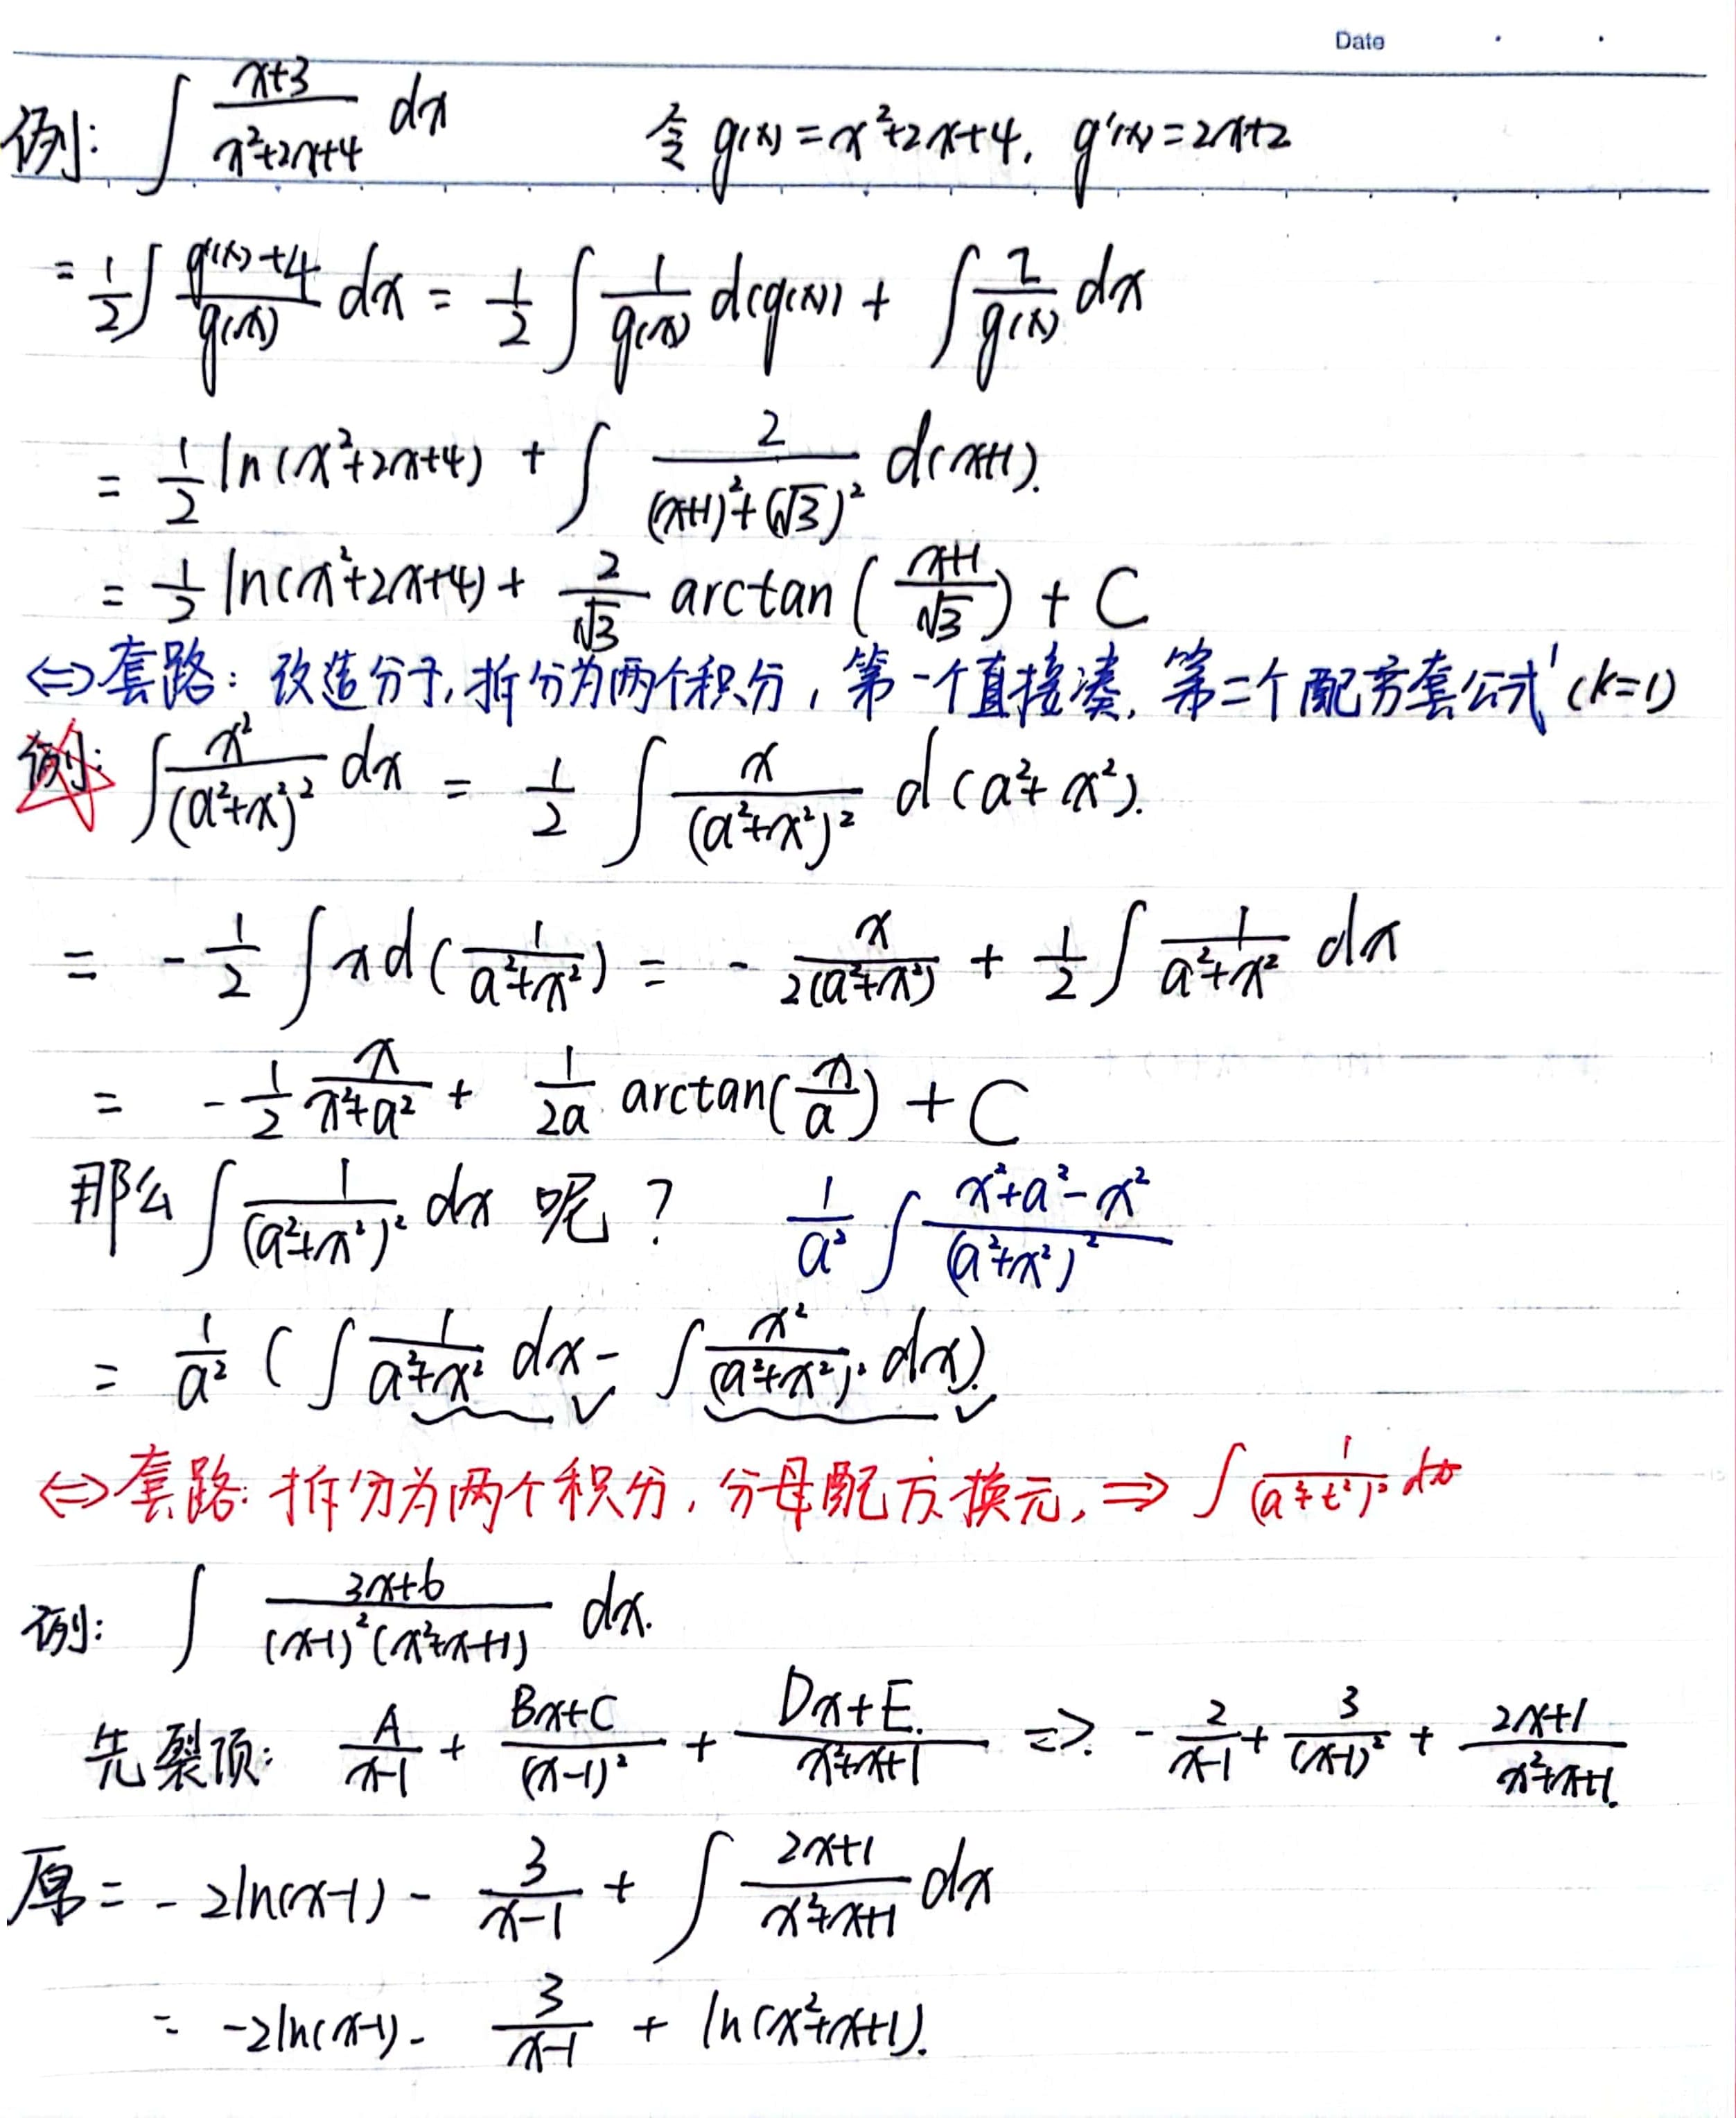 Date
例: ∫ (x+3)/(x²+2x+4) dx 令 g(x)=x²+2x+4, g'(x)=2x+2
= 1/2 ∫ (g'(x)+4)/g(x) dx = 1/2 ∫ 1/g(x) d(g(x)) + ∫ 2/g(x) dx
= 1/2 ln(x²+2x+4) + ∫ 2/((x+1)²+(√3)²) d(x+1).
= 1/2 ln(x²+2x+4) + 2/√3 arctan((x+1)/√3) + C
⇔ 套路: 改造分子,拆分为两个积分,第一个直接凑,第二个配方套公式' (k=1)
例: ∫ x²/(a²+x²)² dx = 1/2 ∫ x/(a²+x²)² d(a²+x²).
= -1/2 ∫ x d(1/(a²+x²)) = - x/(2(a²+x²)) + 1/2 ∫ 1/(a²+x²) dx
= -1/2 x/(x²+a²) + 1/2a arctan(x/a) + C
那么 ∫ 1/(a²+x²)² dx 呢? 1/a² ∫ (x²+a²-x²)/(a²+x²)²
= 1/a² (∫ 1/(a²+x²) dx - ∫ x²/(a²+x²)² dx).
⇔ 套路: 拆分为两个积分,分母配方换元, ⇒ ∫ 1/(a²+t²)² dt
例: ∫ (3x+6)/((x-1)²(x²+x+1)) dx.
先裂项: A/(x-1) + (Bx+C)/(x-1)² + (Dx+E)/(x²+x+1) ⇒ - 2/(x-1) + 3/(x-1)² + (2x+1)/(x²+x+1)
原 = -2ln(x-1) - 3/(x-1) + ∫ (2x+1)/(x²+x+1) dx
= -2ln(x-1) - 3/(x-1) + ln(x²+x+1).